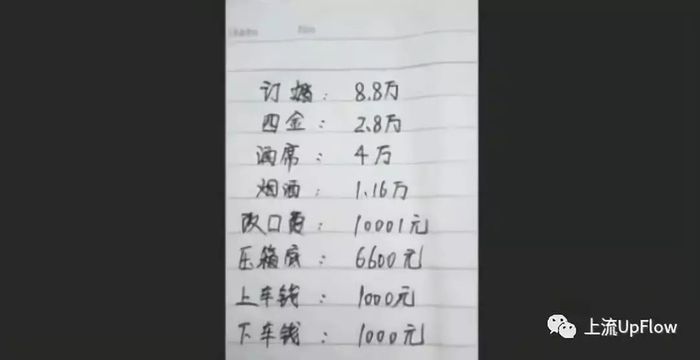 订婚：8.8万
四金：2.8万
酒席：4万
烟酒：1.16万
改口费：10001元
压箱底：6600元
上车钱：1000元
下车钱：1000元
上流UpFlow